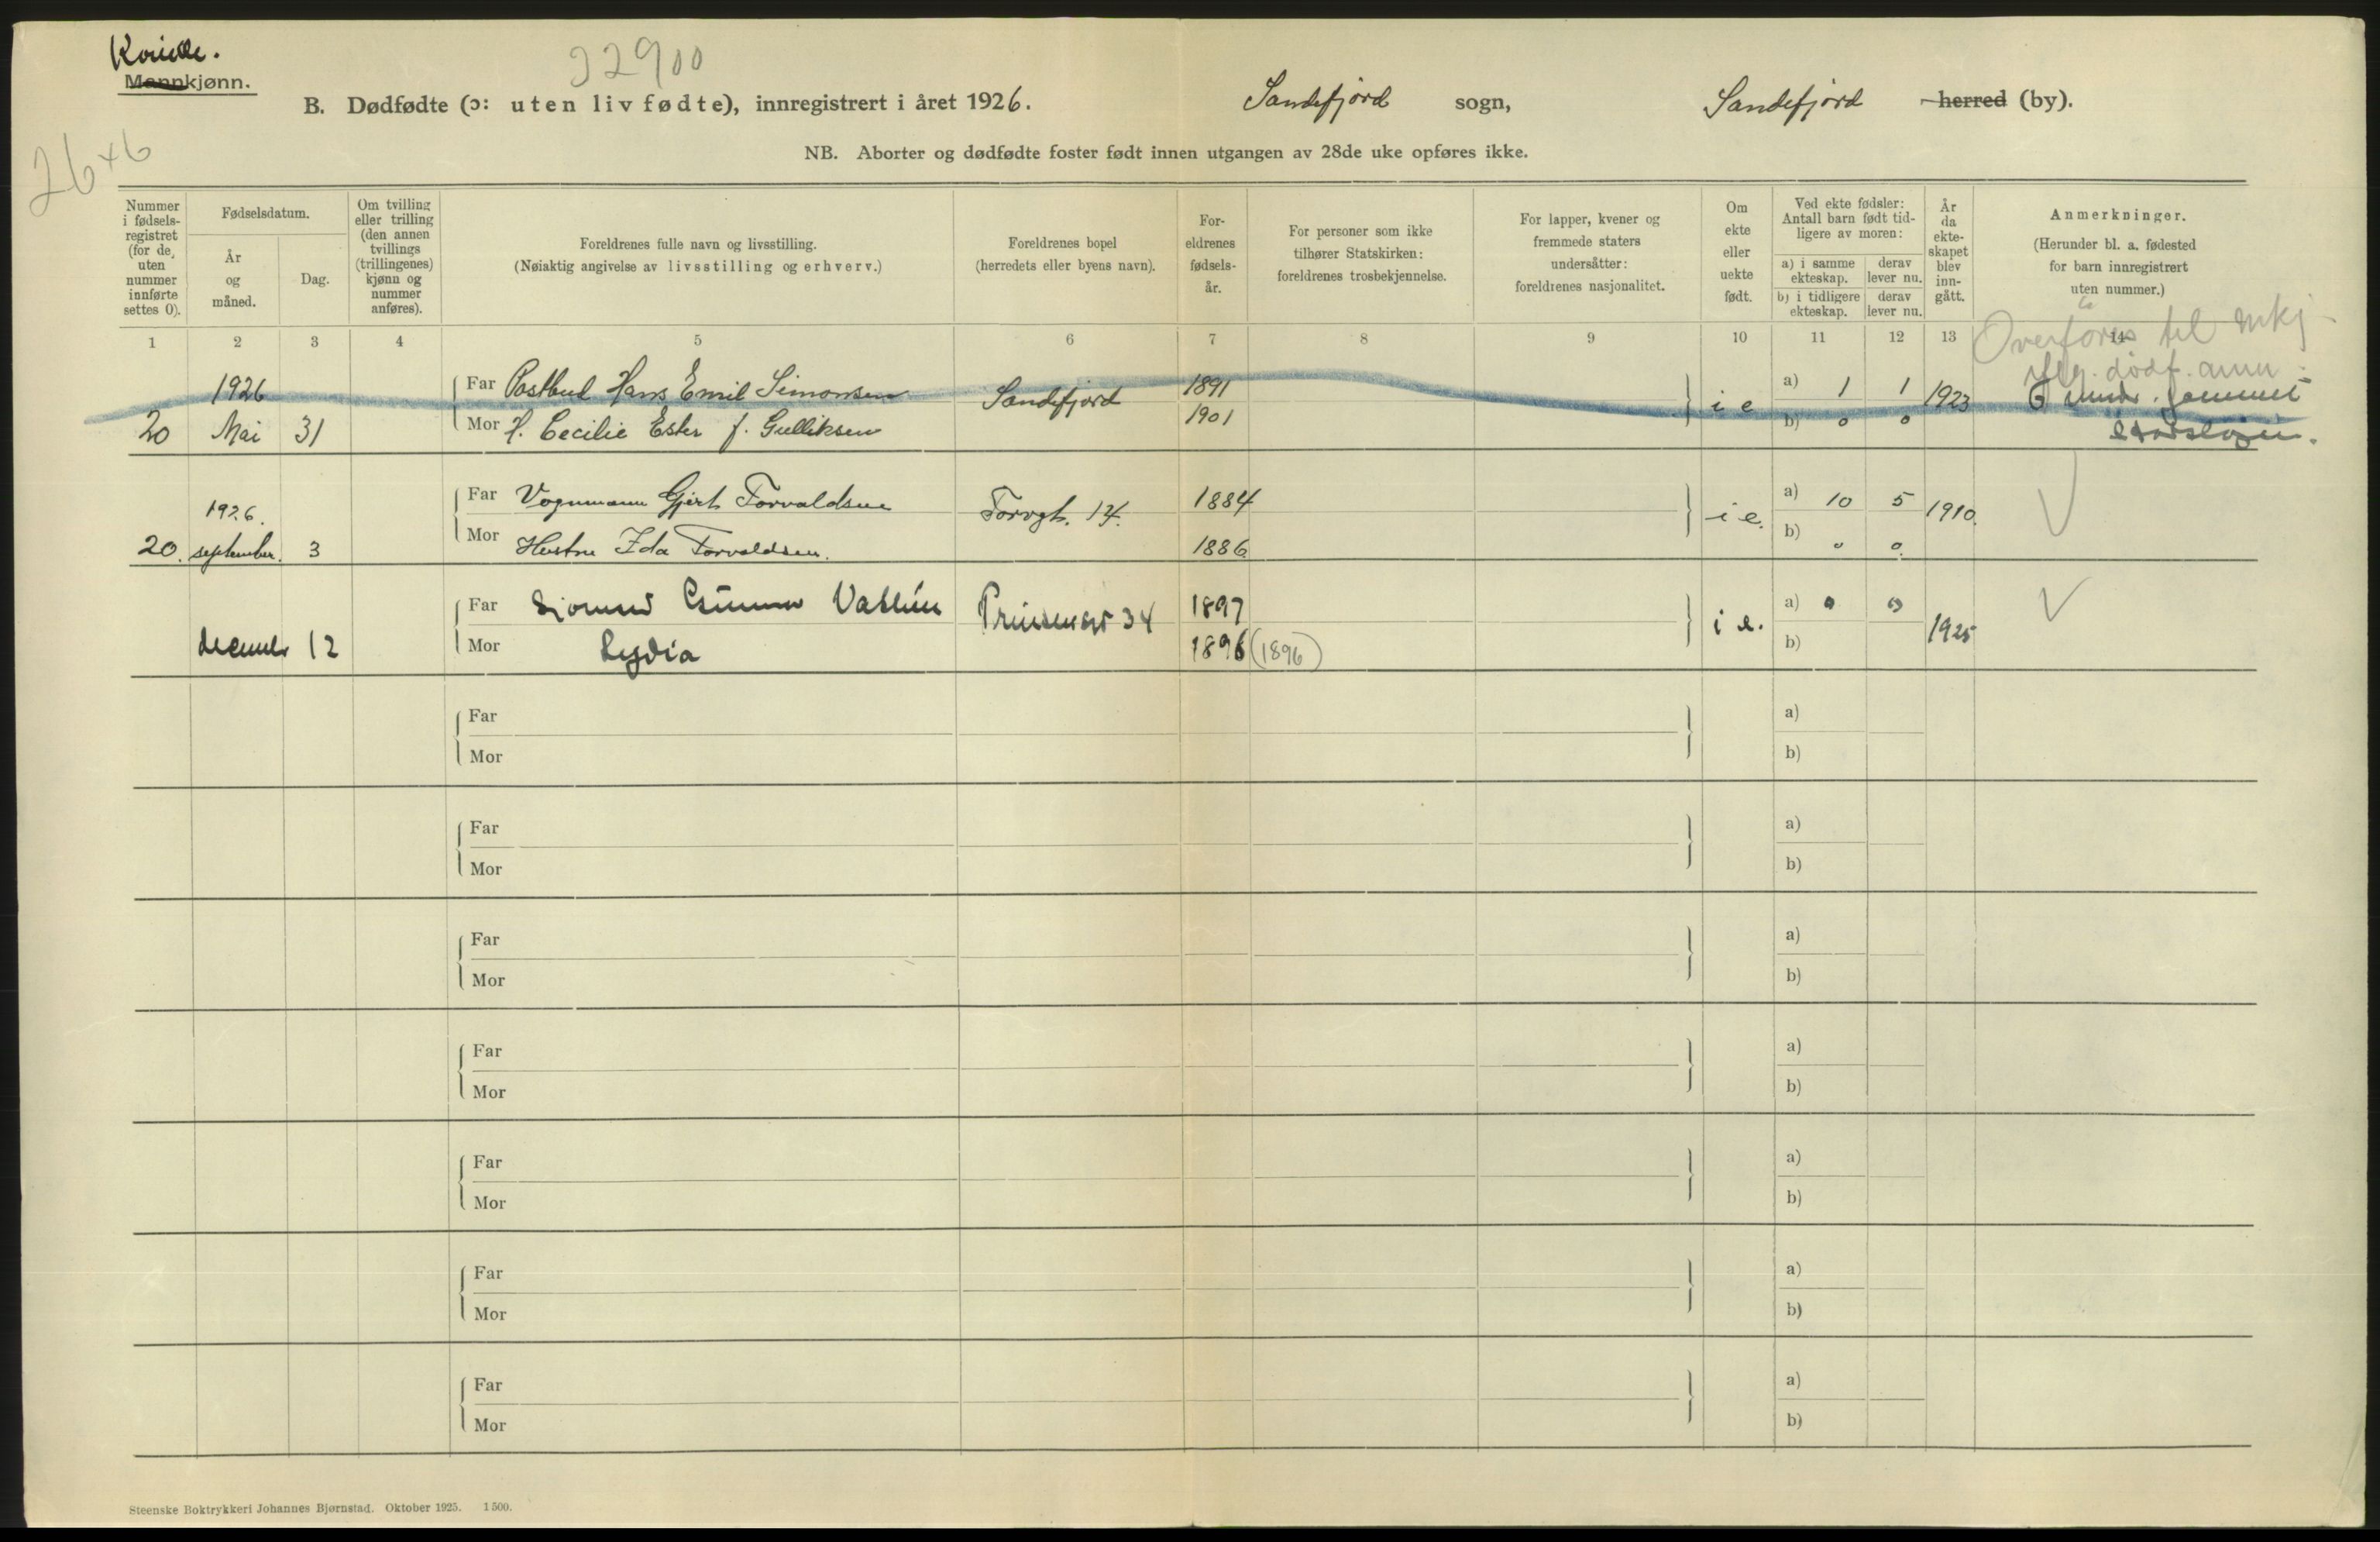 Kvinde.
Mannkjønn.
22900
26+6
B. Dødfødte (ɔ: uten liv fødte), innregistrert i året 1926. Sandefjord sogn, Sandefjord herred (by).
NB. Aborter og dødfødte foster født innen utgangen av 28de uke opføres ikke.
Nummer i fødsels-registret (for de uten nummer innførte settes 0).
Fødselsdatum.
År og måned.
Dag.
Om tvilling eller trilling (den annen tvillings (trillingenes) kjønn og nummer anføres).
Foreldrenes fulle navn og livsstilling.
(Nøiaktig angivelse av livsstilling og erhverv.)
Foreldrenes bopel
(herredets eller byens navn).
For-eldrenes fødsels-år.
For personer som ikke tilhører Statskirken: foreldrenes trosbekjennelse.
For lapper, kvener og fremmede staters undersåtter: foreldrenes nasjonalitet.
Om ekte eller uekte født.
Ved ekte fødsler: Antall barn født tid-ligere av moren:
a) i samme ekteskap.
derav lever nu.
b) i tidligere ekteskap.
derav lever nu.
År da ekte-skapet blev inn-gått.
Anmerkninger.
(Herunder bl. a. fødested for barn innregistrert uten nummer.)
1 2 3 4 5 6 7 8 9 10 11 12 13 14
Overføres til mkj
dødf. anm.
1926
Far Postbud Hans Emil Simonsen Sandefjord 1891 i e a) 1 1 1923
20 Mai 31 Mor H. Cecilie Ester f. Gulliksen 1901 b) 0 0
1926.
Far Vognmann Gjert Torvaldsen Torvgt. 14. 1884 i e. a) 10 5 1910.
20. september. 3 Mor Hustru Ida Torvaldsen. 1886 b) 0 0.
Far Gunnar Prinsensgt 34 1897 i e. a) 0 0 1925
december 12 Mor Lydia 1896 (1896) b)
Far a)
Mor b)
Far a)
Mor b)
Far a)
Mor b)
Far a)
Mor b)
Far a)
Mor b)
Far a)
Mor b)
Far a)
Mor b)
Steenske Boktrykkeri Johannes Bjørnstad. Oktober 1925. 1500.